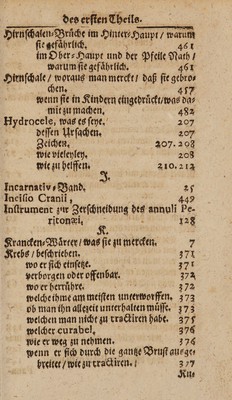 des ersten Theils.
Hirnschalen-Brüche im Hinter-Haupt / warum
sie gefährlich. 461
im Ober-Haupt und der Pfeile Nath /
warum sie gefährlich. 461
Hirnschale / woraus man mercket / daß sie gebro-
chen. 457
wenn sie in Kindern eingedrückt / was da-
mit zu machen. 482
Hydrocele, was es seye. 207
dessen Ursachen. 207
Zeichen. 207. 208
wie vieleyley. 208
wie zu helffen. 210. 212
I.
Incarnativ-Band. 25
Incisio Cranii, 449
Instrument zur Zerschneidung des annuli Pe-
ritonæi, 128
K.
Krancken-Wärter / was sie zu mercken. 7
Krebs / beschrieben. 371
wo er sich einsetze. 371
verborgen oder offenbar. 372
wo er herrühre. 372
welche ihme am meisten unterworffen. 373
ob man ihn allezeit unterhalten müsse. 373
welchen man nicht zu tractiren habe. 375
welcher curabel, 376
wie er weg zu nehmen. 376
wenn er sich durch die gantze Brust ausge-
breitet / wie zu tractiren. 377